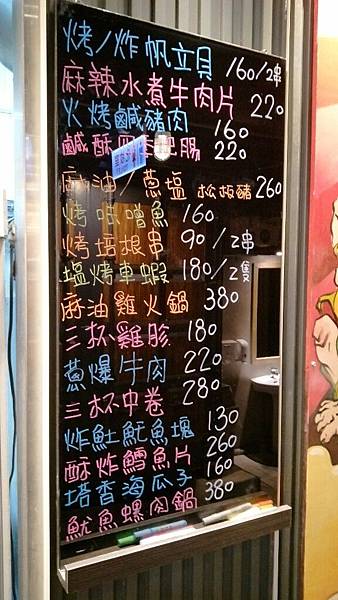 烤/炸帆立貝 160/2串
麻辣水煮牛肉片 220
火烤鹹豬肉 160
鹹酥 肥腸 220
麻油/蔥塩 松板豬 260
烤味噌魚 160
烤培根串 90/2串
塩烤車蝦 180/2隻
麻油雞火鍋 380
三杯雞胗 180
蔥爆牛肉 220
三杯中卷 280
炸魟魠魚塊 130
酥炸鱈魚片 260
塔香海瓜子 160
魷魚螺肉鍋 380